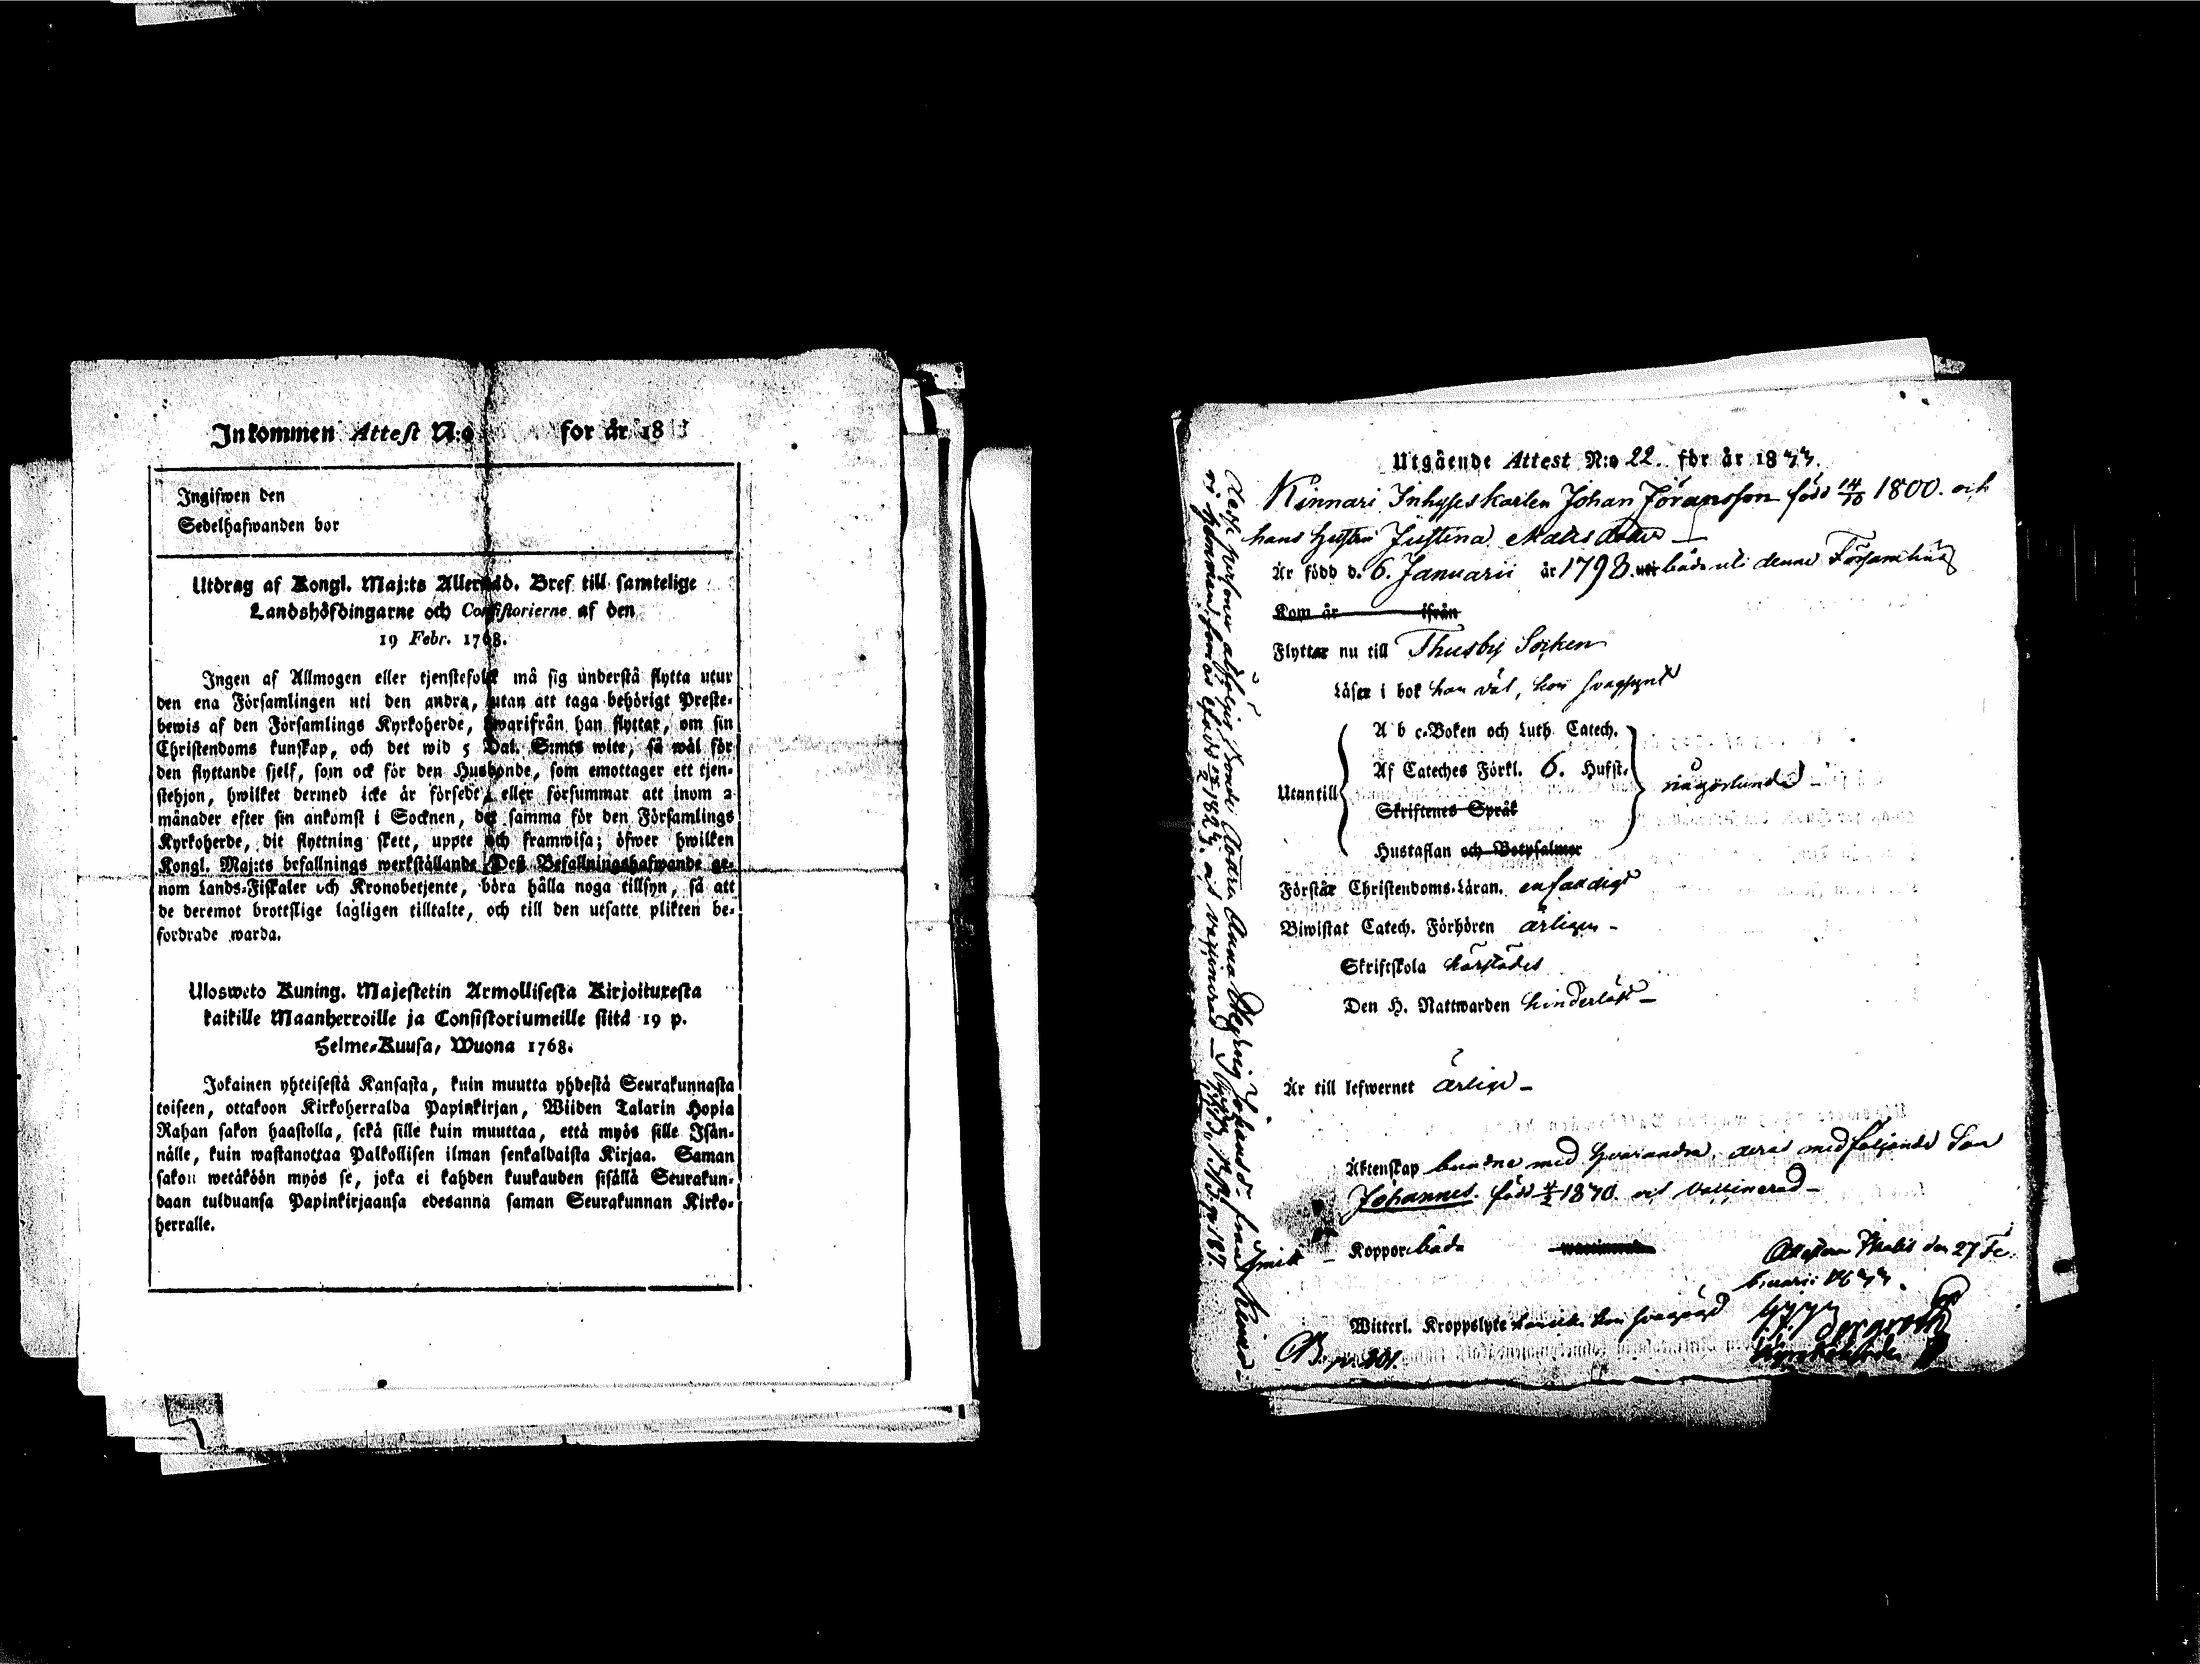 Inkommen Attest N:o for år 18
Ingifwen den
Sedelhafwanden bor
Utdrag af Kongl. Maj:ts Allernåd. Bref till samtelige
Landshöfdingarne och Consistorierne af den
19 Febr. 1768.
Ingen af Allmogen eller tjenstefolk må sig understå flytta utur
den ena Församlingen uti den andra, utan att taga behörigt Preste-
bewis af den Församlings Kyrkoherde, hwarifrån han flyttar, om sin
Christendoms kunskap, och det wid 5 Dal. S:mts wite, så wäl för
den flyttande sjelf, som ock för den Husbonde, som emottager ett tjen-
stehjon, hwilket dermed icke är försedt, eller försummar att inom 2
månader efter sin ankomst i Socknen, det samma för den Församlings
Kyrkoherde, dit flyttning skett, uppte och framwisa; öfwer hwilken
Kongl. Maj:ts befallnings werkställande Dess Befallningshafwande ge-
nom Lands-Fiskaler och Kronobetjente, böra hålla noga tillsyn, så att
de deremot brottslige lagligen tilltalte, och till den utsatte plikten be-
fordrade warda.
Uloswelo Kuning. Majestetin Armollisesta Kirjoituxesta
kaikille Maanherroille ja Consistoriumeille siitä 19 p.
Helme-Kuusa, Wuona 1768.
Jokainen yhteisestä Kansasta, kuin muutta yhdestä Seurakunnasta
toiseen, ottakoon Kirkoherralda Papinkirjan, Wiiden Talarin Hopia
Rahan sakon haastolla, sekä sille kuin muuttaa, että myös sille Isän-
nälle, kuin wastanottaa Palkollisen ilman senkaldaista Kirjaa. Saman
sakon wetäköön myös se, joka ei kahden kuukauden sisällä Seurakun-
daan tulduansa Papinkirjaansa edesanna saman Seurakunnan Kirko-
herralle.
Utgående Attest N:o 22. för år 1833.
Kinnari Inhyseskarlen Johan Jöransson född 14/10 1800. och
hans Hustru Justina Matsdotter
Är född d. 6. Januarii år 1798. både uti denne Församling
Kom år ifrån
Flyttar nu till Thusby Socken
Läser i bok han väl, hon svagsynt
A b c-Boken och Luth. Catech.
Af Cateches Förkl. 6. Hufst.
Utantill någorlunda
Skriftenes Språk
Hustaflan och Botpsalmer
Förstår Christendoms-Läran. enfaldigt
Biwistat Catech. Förhören årligen -
Skriftskola härstädes
Den H. Nattwarden hinderlöst -
Är till lefwernet ärligt -
Äktenskap bundne med hvarandra, deras medföljande Son
Johannes. född 1830. och Vaccinerad -
Koppor båda
Attesterar den 27 Fe-
bruarii 1833.
Witterl. Kroppslyte
B. p. 201.